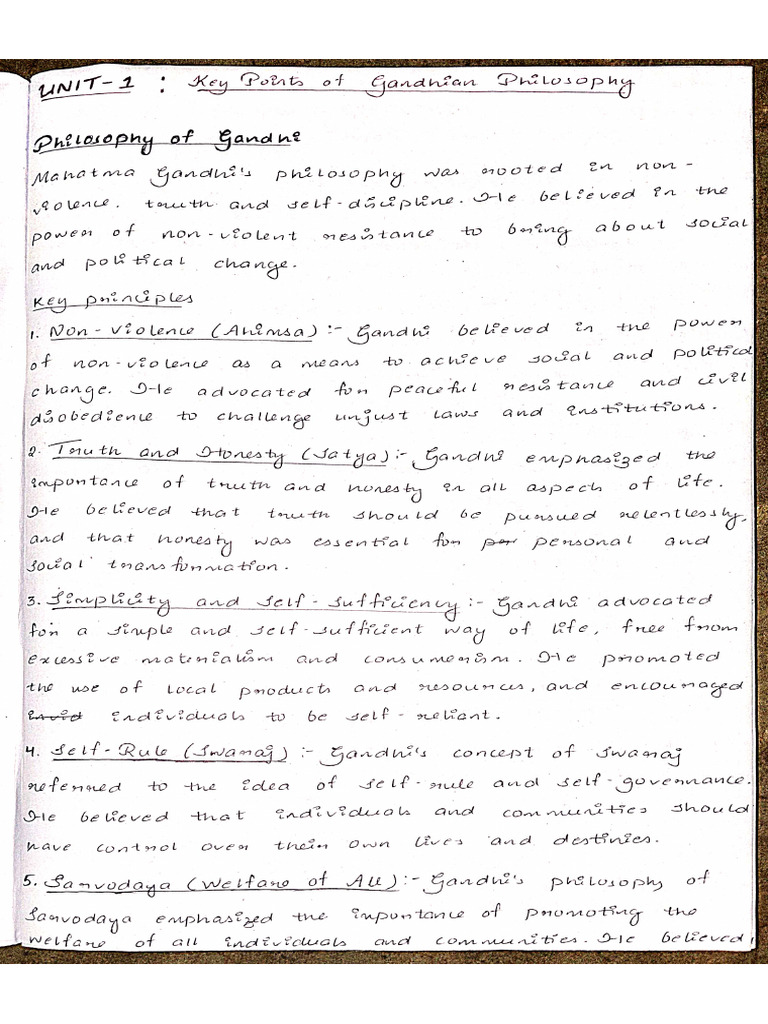 UNIT-1 : Key Points of Gandhian Philosophy
Philosophy of Gandhi
Mahatma Gandhi's philosophy was rooted in non-
violence, truth and self-discipline. He believed in the
power of non-violent resistance to bring about social
and political change.
Key principles
1. Non-Violence (Ahimsa) :- Gandhi believed in the power
of non-violence as a means to achieve social and political
change. He advocated for peaceful resistance and civil
disobedience to challenge unjust laws and institutions.
2. Truth and Honesty (Satya) :- Gandhi emphasized the
importance of truth and honesty in all aspech of life.
He believed that truth should be pursued relentlessly,
and that honesty was essential for per personal and
social transformation.
3. Simplicity and self-sufficiency :- Gandhi advocated
for a simple and self-sufficient way of life, free from
excessive materialism and consumerism. He promoted
the use of local products and resources, and encouraged
invid individuals to be self-reliant.
4. Self-Rule (Swaraj) :- Gandhi's concept of swaraj
referred to the idea of self-rule and self-governance.
He believed that individuals and communities should
have control over their own lives and destinies.
5. Sarvodaya (Welfare of All) :- Gandhi's philosophy of
Sarvodaya emphasized the importance of promoting the
welfare of all individuals and communities. He believed